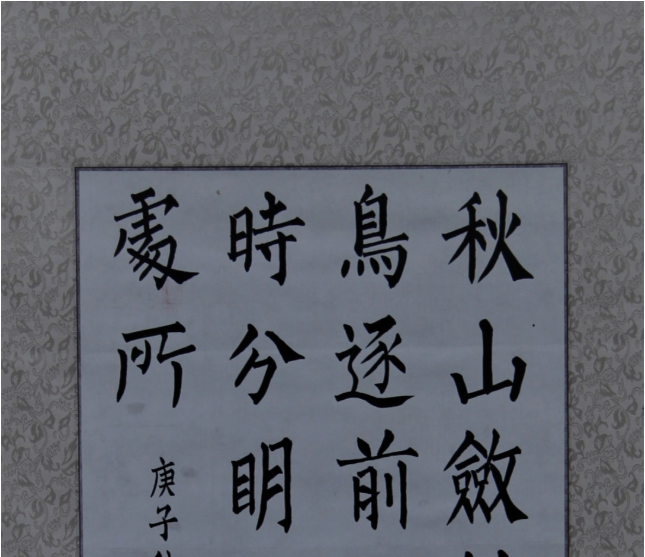 秋山斂
鳥逐前
時分明
處所
庚子